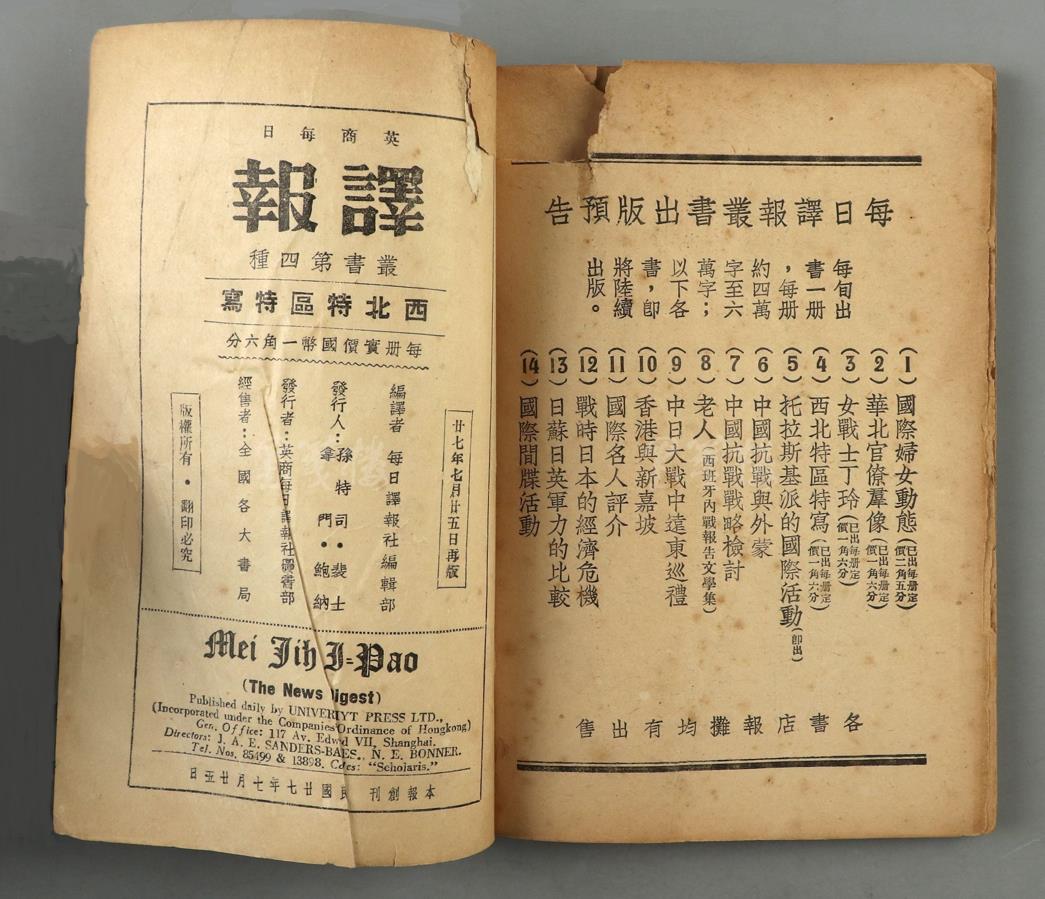 每日譯報叢書出版預告
每旬出
書一册
，每册
約四萬
字至六
萬字；
以下各
書，即
將陸續
出版。
(1) 國際婦女動態 (已出每册定價二角五分)
(2) 華北官僚羣像 (已出每册定價一角六分)
(3) 女戰士丁玲 (已出每册定價一角六分)
(4) 西北特區特寫 (已出每册定價一角六分)
(5) 托拉斯基派的國際活動 (即出)
(6) 中國抗戰與外蒙
(7) 中國抗戰戰略檢討
(8) 老人 (西班牙內戰報告文學集)
(9) 中日大戰中遠東巡禮
(10) 香港與新嘉坡
(11) 國際名人評介
(12) 戰時日本的經濟危機
(13) 日蘇日英軍力的比較
(14) 國際間牒活動
各書店報攤均有出售
英商每日
譯報
叢書第四種
西北特區特寫
每册實價國幣一角六分
廿七年七月廿五日再版
編譯者 每日譯報社編輯部
發行人：孫特司・裴士
拿門・鮑納
發行者：英商每日譯報社圖書部
經售者：全國各大書局
版權所有・翻印必究
Mei Jih I=Pao
(The News Digest)
Published daily by UNIVERIYT PRESS LTD.,
(Incorporated under the Companies Ordinance of Hongkong)
Gen. Office: 117 Av. Edwd VII, Shanghai.
Directors: J. A. E. SANDERS-BAES., N. E. BONNER.
Tel. Nos. 85499 & 13898. Cdes: "Scholaris."
本報創刊 民國廿七年七月廿五日